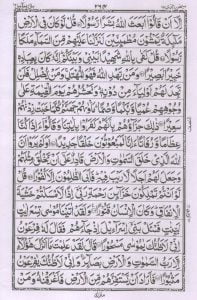 ٢٦٤
اِلَّاۤ اَنْ قَالُوْۤا اَبَعَثَ اللّٰهُ بَشَرًا رَّسُوْلًا قُلْ لَّوْ كَانَ فِی الْاَرْضِ
مَلٰٓئِكَةٌ یَّمْشُوْنَ مُطْمَئِنِّیْنَ لَنَزَّلْنَا عَلَیْهِمْ مِّنَ السَّمَآءِ مَلَكًا
رَّسُوْلًا قُلْ كَفٰی بِاللّٰهِ شَهِیْدًۢا بَیْنِیْ وَبَیْنَكُمْ اِنَّهٗ كَانَ بِعِبَادِهٖ
خَبِیْرًۢا بَصِیْرًا وَمَنْ یَّهْدِ اللّٰهُ فَهُوَ الْمُهْتَدِ وَمَنْ یُّضْلِلْ فَلَنْ
تَجِدَ لَهُمْ اَوْلِیَآءَ مِنْ دُوْنِهٖ وَنَحْشُرُهُمْ یَوْمَ الْقِیٰمَةِ عَلٰی
وُجُوْهِهِمْ عُمْیًا وَّبُكْمًا وَّصُمًّا مَاْوٰىهُمْ جَهَنَّمُ كُلَّمَا خَبَتْ زِدْنٰهُمْ
سَعِیْرًا ذٰلِكَ جَزَآؤُهُمْ بِاَنَّهُمْ كَفَرُوْا بِاٰیٰتِنَا وَقَالُوْۤا ءَاِذَا كُنَّا
عِظَامًا وَّرُفَاتًا ءَاِنَّا لَمَبْعُوْثُوْنَ خَلْقًا جَدِیْدًا اَوَلَمْ یَرَوْا اَنَّ
اللّٰهَ الَّذِیْ خَلَقَ السَّمٰوٰتِ وَالْاَرْضَ قَادِرٌ عَلٰۤی اَنْ یَّخْلُقَ مِثْلَهُمْ
وَجَعَلَ لَهُمْ اَجَلًا لَّا رَیْبَ فِیْهِ فَاَبَی الظّٰلِمُوْنَ اِلَّا كُفُوْرًا قُلْ
لَّوْ اَنْتُمْ تَمْلِكُوْنَ خَزَآئِنَ رَحْمَةِ رَبِّیْۤ اِذًا لَّاَمْسَكْتُمْ خَشْیَةَ
الْاِنْفَاقِ وَكَانَ الْاِنْسَانُ قَتُوْرًا وَلَقَدْ اٰتَیْنَا مُوْسٰی تِسْعَ اٰیٰتٍۭ
بَیِّنٰتٍ فَسْـَٔلْ بَنِیْۤ اِسْرَآءِیْلَ اِذْ جَآءَهُمْ فَقَالَ لَهٗ فِرْعَوْنُ
اِنِّیْ لَاَظُنُّكَ یٰمُوْسٰی مَسْحُوْرًا قَالَ لَقَدْ عَلِمْتَ مَاۤ اَنْزَلَ هٰۤؤُلَآءِ
اِلَّا رَبُّ السَّمٰوٰتِ وَالْاَرْضِ بَصَآئِرَ وَاِنِّیْ لَاَظُنُّكَ یٰفِرْعَوْنُ
مَثْبُوْرًا فَاَرَادَ اَنْ یَّسْتَفِزَّهُمْ مِّنَ الْاَرْضِ فَاَغْرَقْنٰهُ وَمَنْ